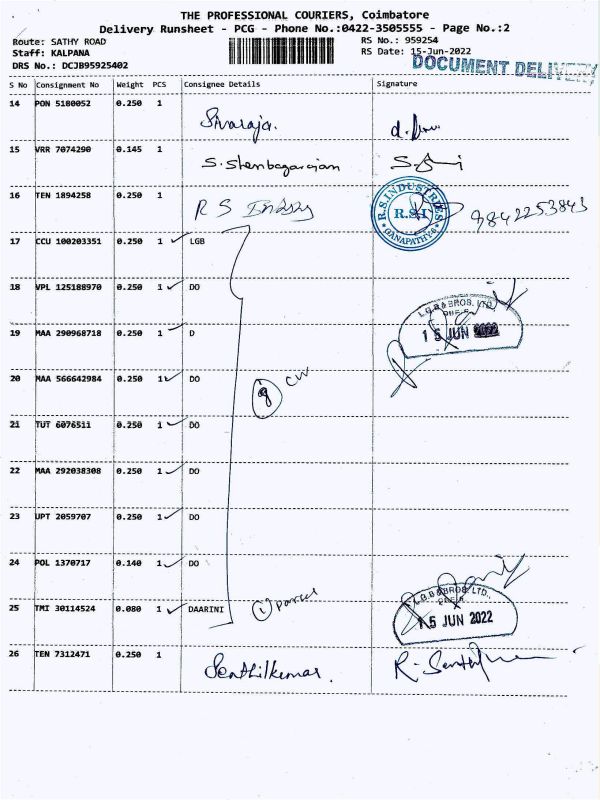 THE PROFESSIONAL COURIERS, Coimbatore
Delivery Runsheet - PCG - Phone No.:0422-3505555 - Page No.:2
Route: SATHY ROAD
RS No.: 959254
Staff: KALPANA
RS Date: 15-Jun-2022
DRS No.: DCJB95925402
DOCUMENT DELIVERY
S No Consignment No Weight PCS Consignee Details Signature
14 PON 5180052 0.250 1 Sivaraja.
15 VRR 7074290 0.145 1 S. Shenbagarajan
16 TEN 1894258 0.250 1 R S
R.S.INDUSTRIES
R.S.I
GANAPATHY-6
9842253843
17 CCU 100203351 0.250 1 LGB
18 VPL 125188970 0.250 1 DO
L.G.B & BROS. LTD.
19 MAA 290968718 0.250 1 D
15 JUN 2022
20 MAA 566642984 0.250 1 DO
21 TUT 6076511 0.250 1 DO
22 MAA 292038308 0.250 1 DO
23 UPT 2059707 0.250 1 DO
24 POL 1370717 0.140 1 DO
L.G.B & BROS. LTD.
25 TMI 30114524 0.080 1 DAARINI 1 parcel
15 JUN 2022
26 TEN 7312471 0.250 1 Senthilkumar